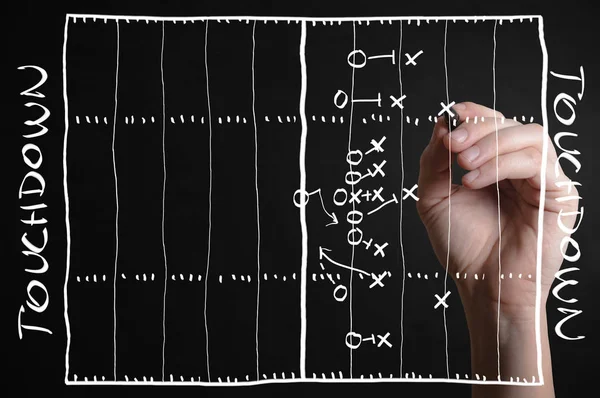 TOUCHDOWN
TOUCHDOWN